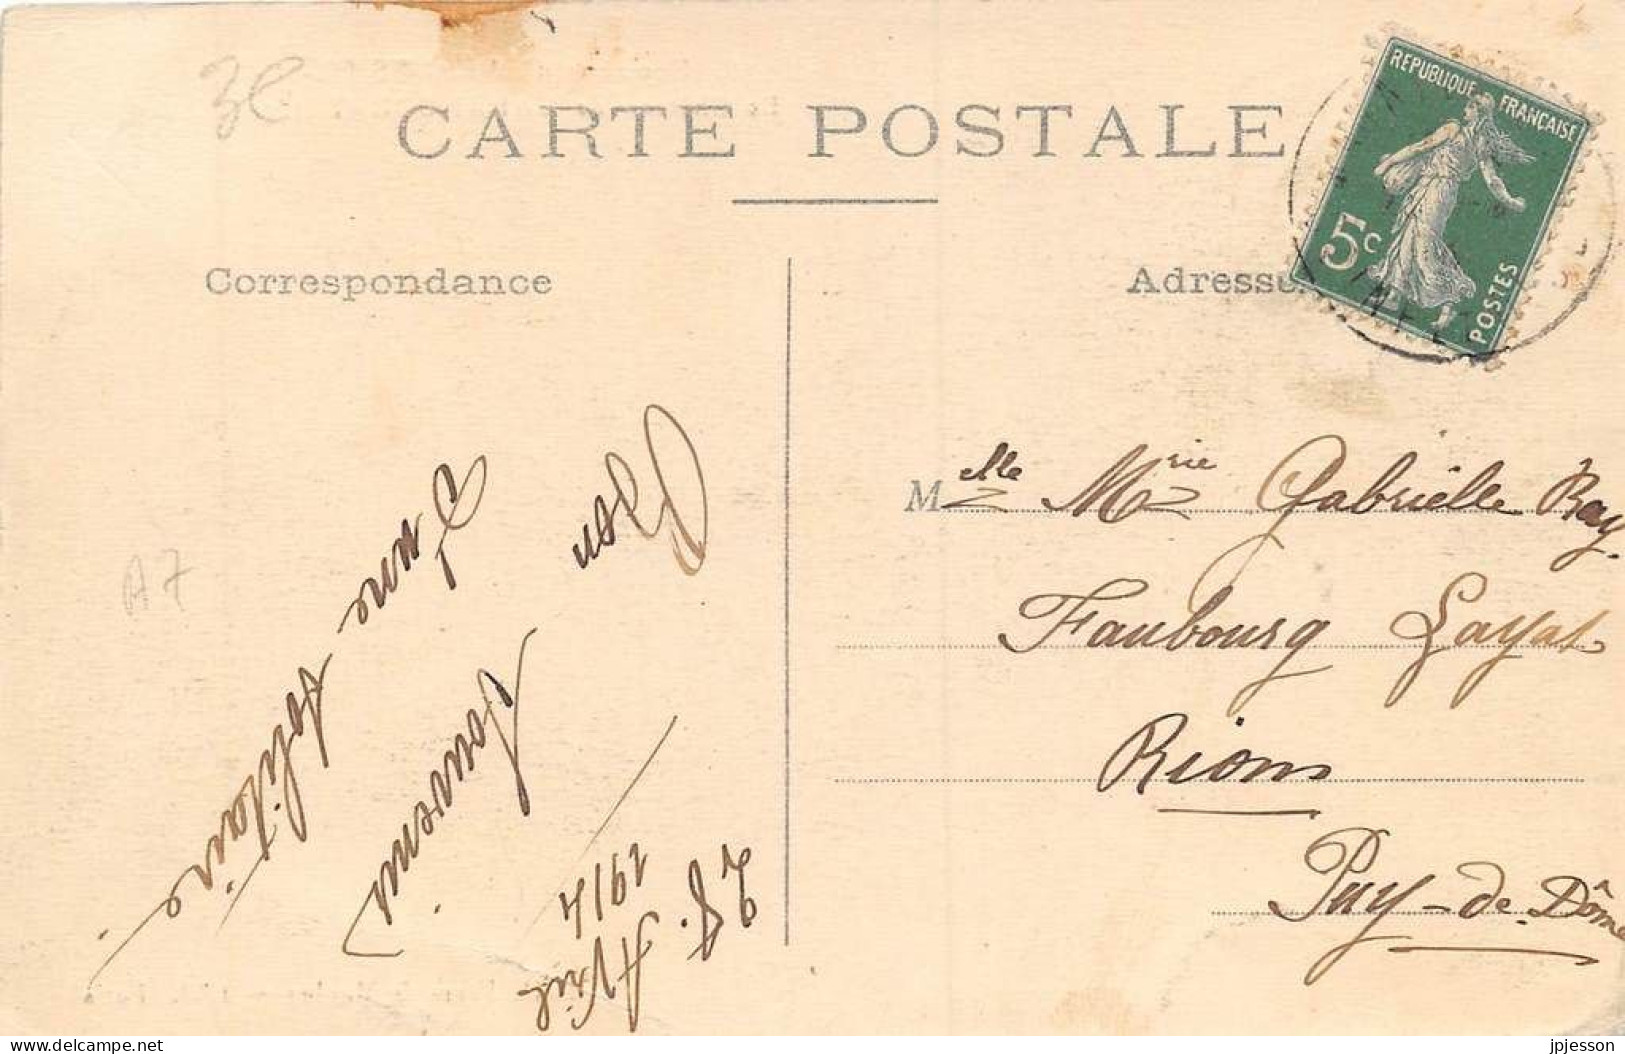 3€
CARTE POSTALE
Correspondance
Adresse
REPUBLIQUE FRANÇAISE
5c
POSTES
A7
Melle Mrie Gabrielle Ray.
Faubourg Layat
Riom
Puy-de-Dôme
28. Avril
1914
Bon
Souvenir
D'une solitaire
jpjesson
© www.delcampe.net